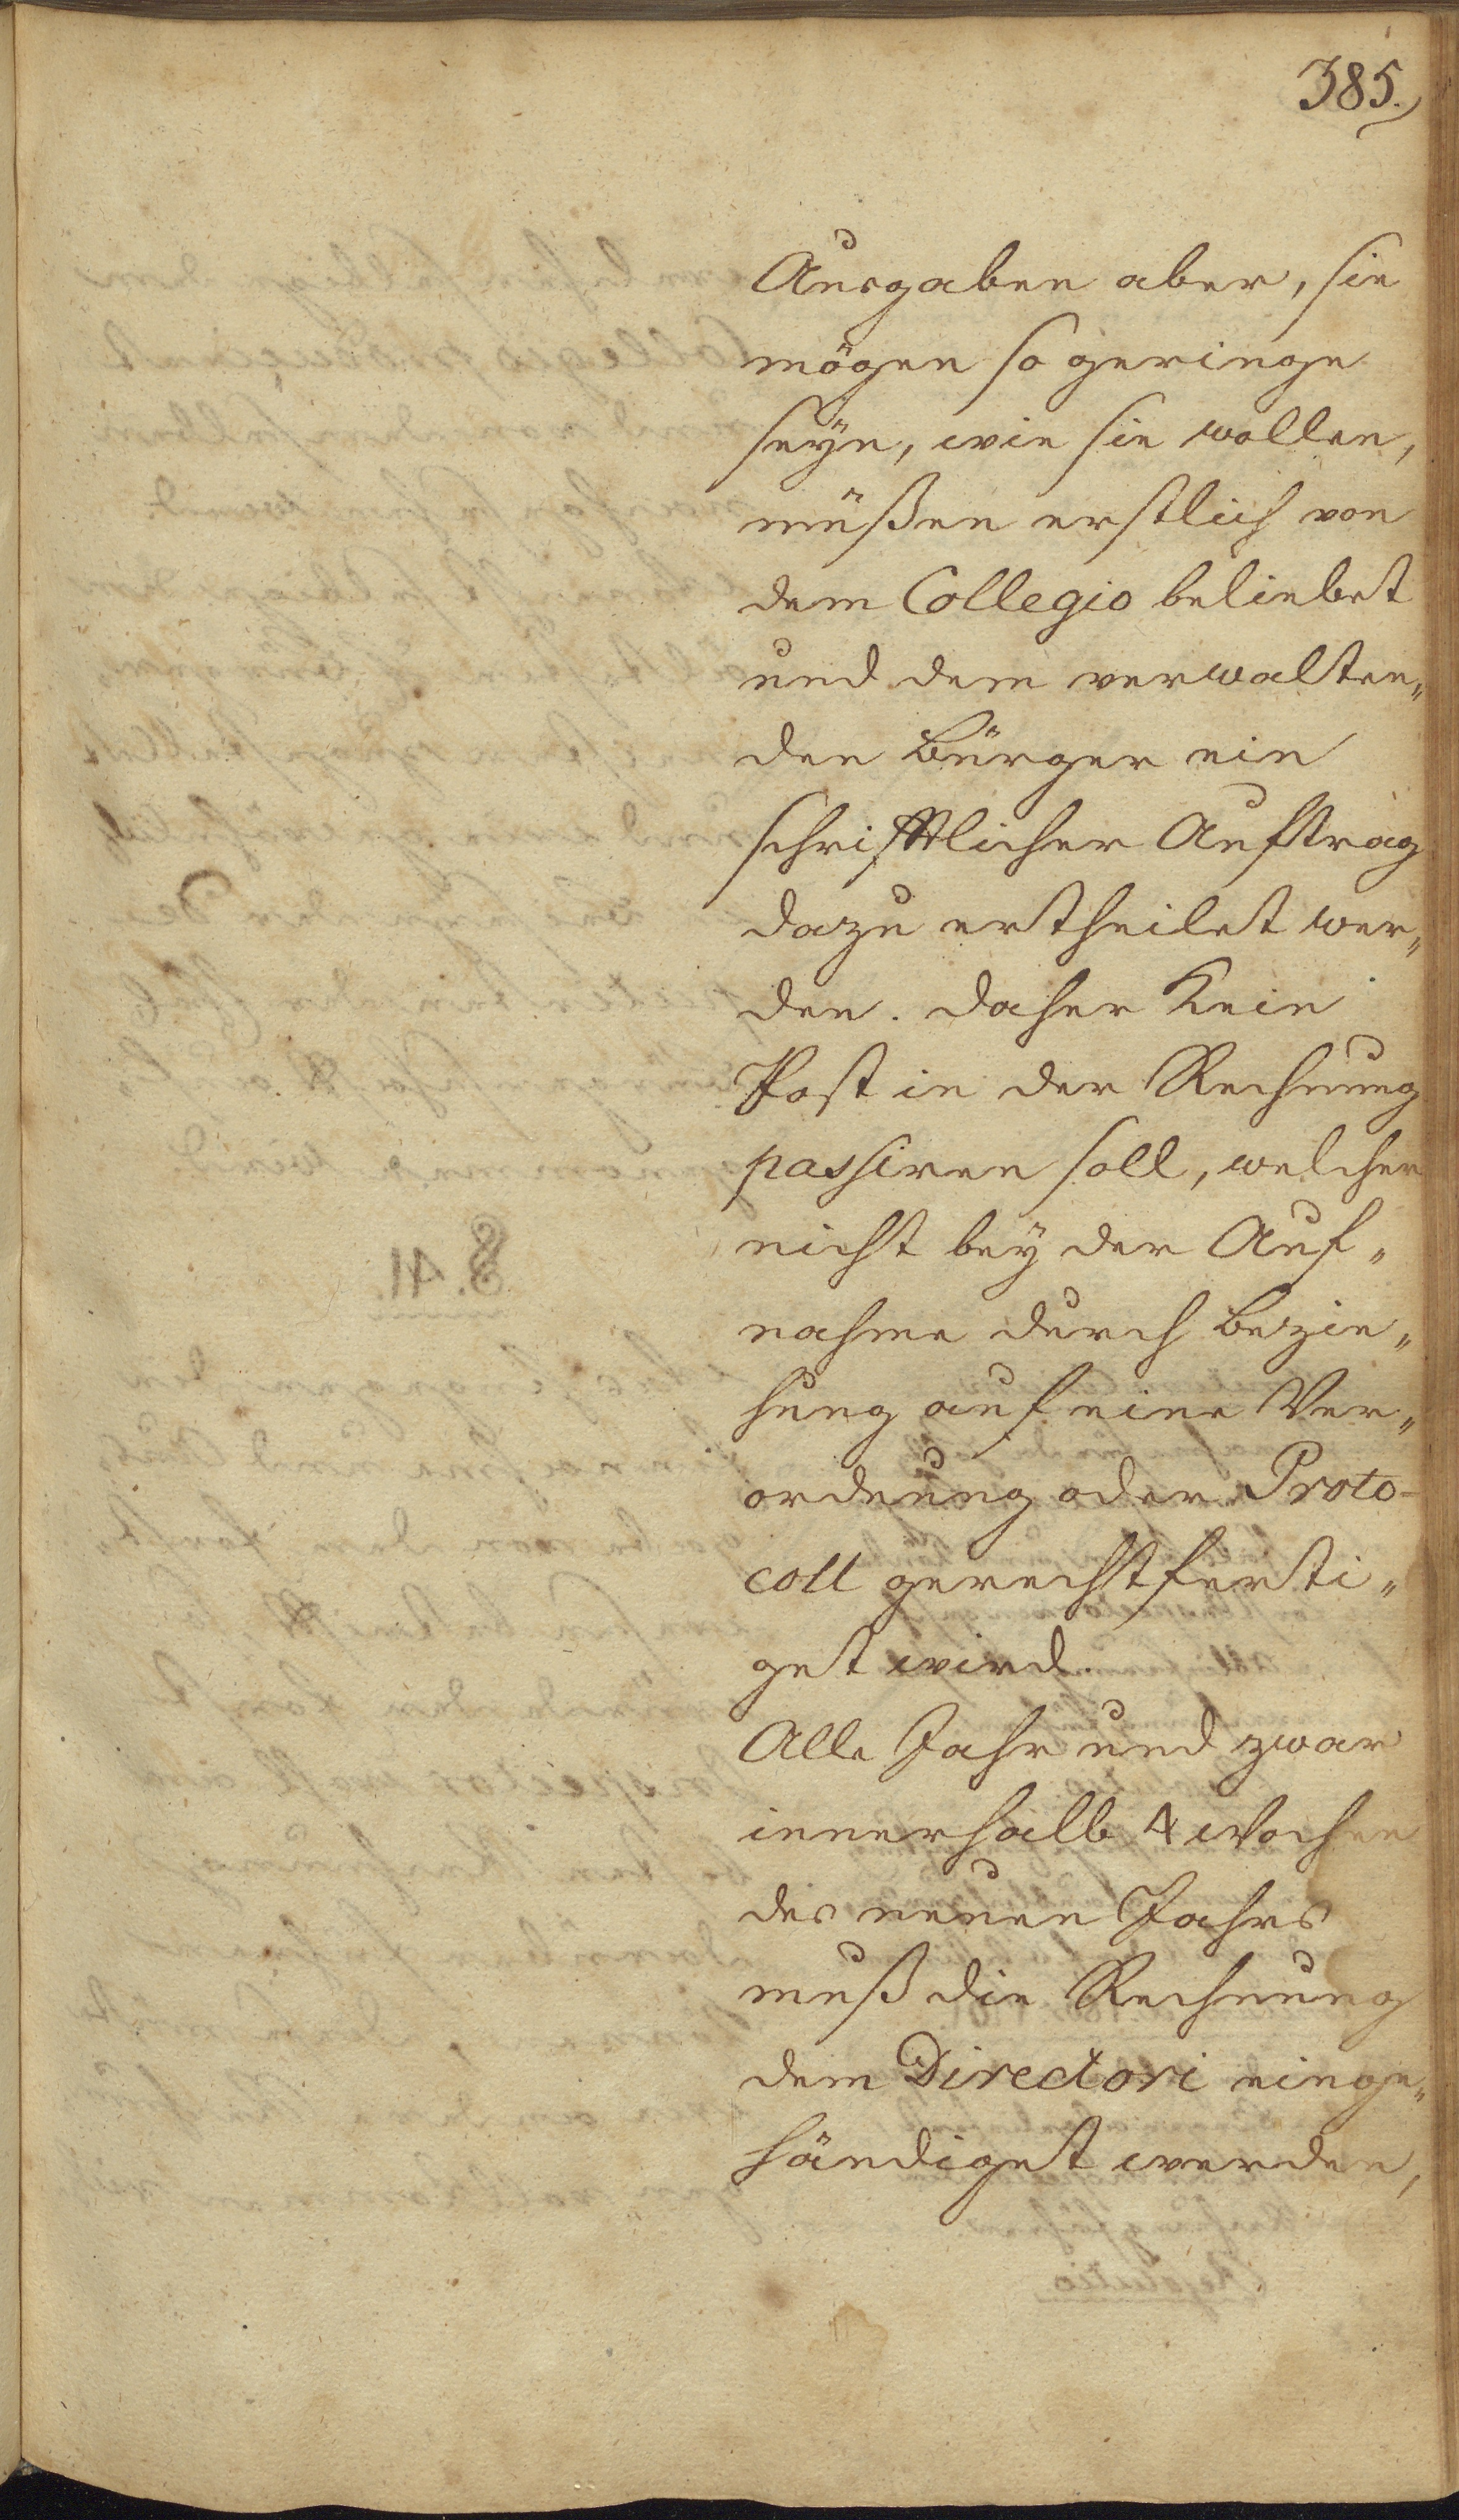 385.
Ausgaben aber, sie
mögen so geringe
seÿn, wie sie wollen,
müßen erstlich von
dem Collegio beliebet
und dem verwalten„
den Bürger ein
schrifftlicher Auftrag
dazu ertheilet wer„
den. Daher Kein
Post in der Rechnung
passiren soll, welcher
nicht beÿ der Auf„
nahme durch Bezie„
hung auf eine Ver„
ordnung oder Proto-
coll gerechtferti„
get wird.
Alle Jahr und zwar
innerhalb 4 Wochen
des neuen Jahrs
muß die Rechnung
dem Directori einge„
händiget werden,